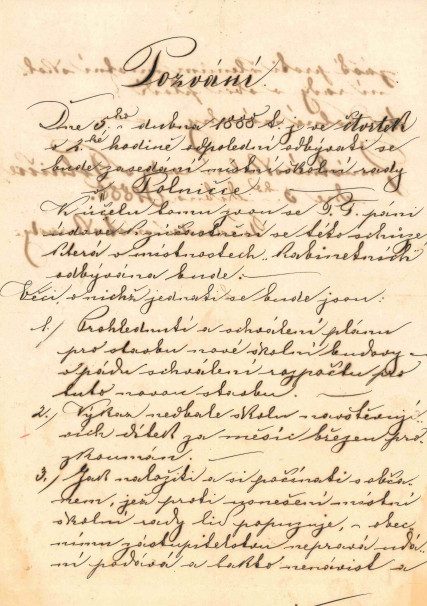 Pozvání.
Dne 5ho dubna 1888 t. j. ve čtvrtek
v 2ké hodině odpolední odbývati se
bude zasedání místní školní rady
v Polničce.
K účelu tomu zvou se P. T. páni
údové k súčastnění se této schůze
která v místnostech kabinetních
odbývána bude:
Věci, o nichž jednati se bude jsou:
1./ Prohlednutí a schválení plánu
pro stavbu nové školní budovy
v pádu schválení rozpočtu pro
tuto novou stavbu.
2./ Výkaz nedbale školu navštěvují-
cích dítek za měsíc březen pro-
zkoumán.
3./ Jak naložiti a si počínati s obča-
nem, jež proti usnešení místní
školní rady lid popuzuje, obec-
nímu zastupitelstvu nepravá udá-
ní podává a takto nenávist a